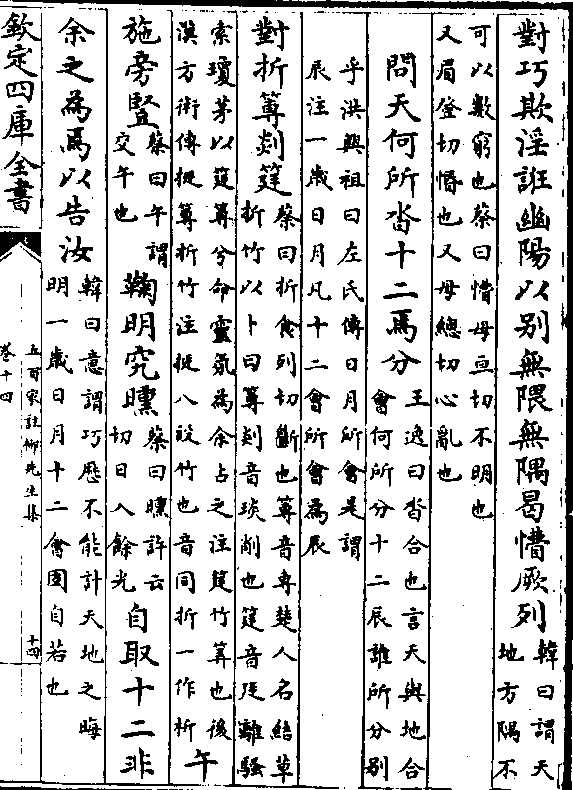 對巧欺淫誑幽陽以别無隈無隅曷懵厥列韓曰謂天
地方隅不
可以數窮也蔡曰懵母亘切不明也
又眉登切惛也又母總切心亂也
問天何所沓十二焉分王逸曰沓合也言天與地合
會何所分十二辰誰所分别
乎洪興祖曰左氏傳日月所會是謂
辰注一歲日月凡十二會所會為辰
對折篿剡筳蔡曰折食列切斷也篿音專楚人名結草
折竹以卜曰篿剡音琰削也筳音廷離騷
索瓊茅以筳篿兮命靈氛為余占之注筳竹筭也後
漢方術傳挺篿折竹注挺八段竹也音同折一作析
午
施旁豎蔡曰午謂
交午也
鞠明究曛蔡曰曛許云
切日入餘光
自取十二非
余之為焉以告汝韓曰意謂巧厯不能計天地之晦
明一歲日月十二會固自若也
欽定四庫全書
五百家註柳先生集
卷十四
十四